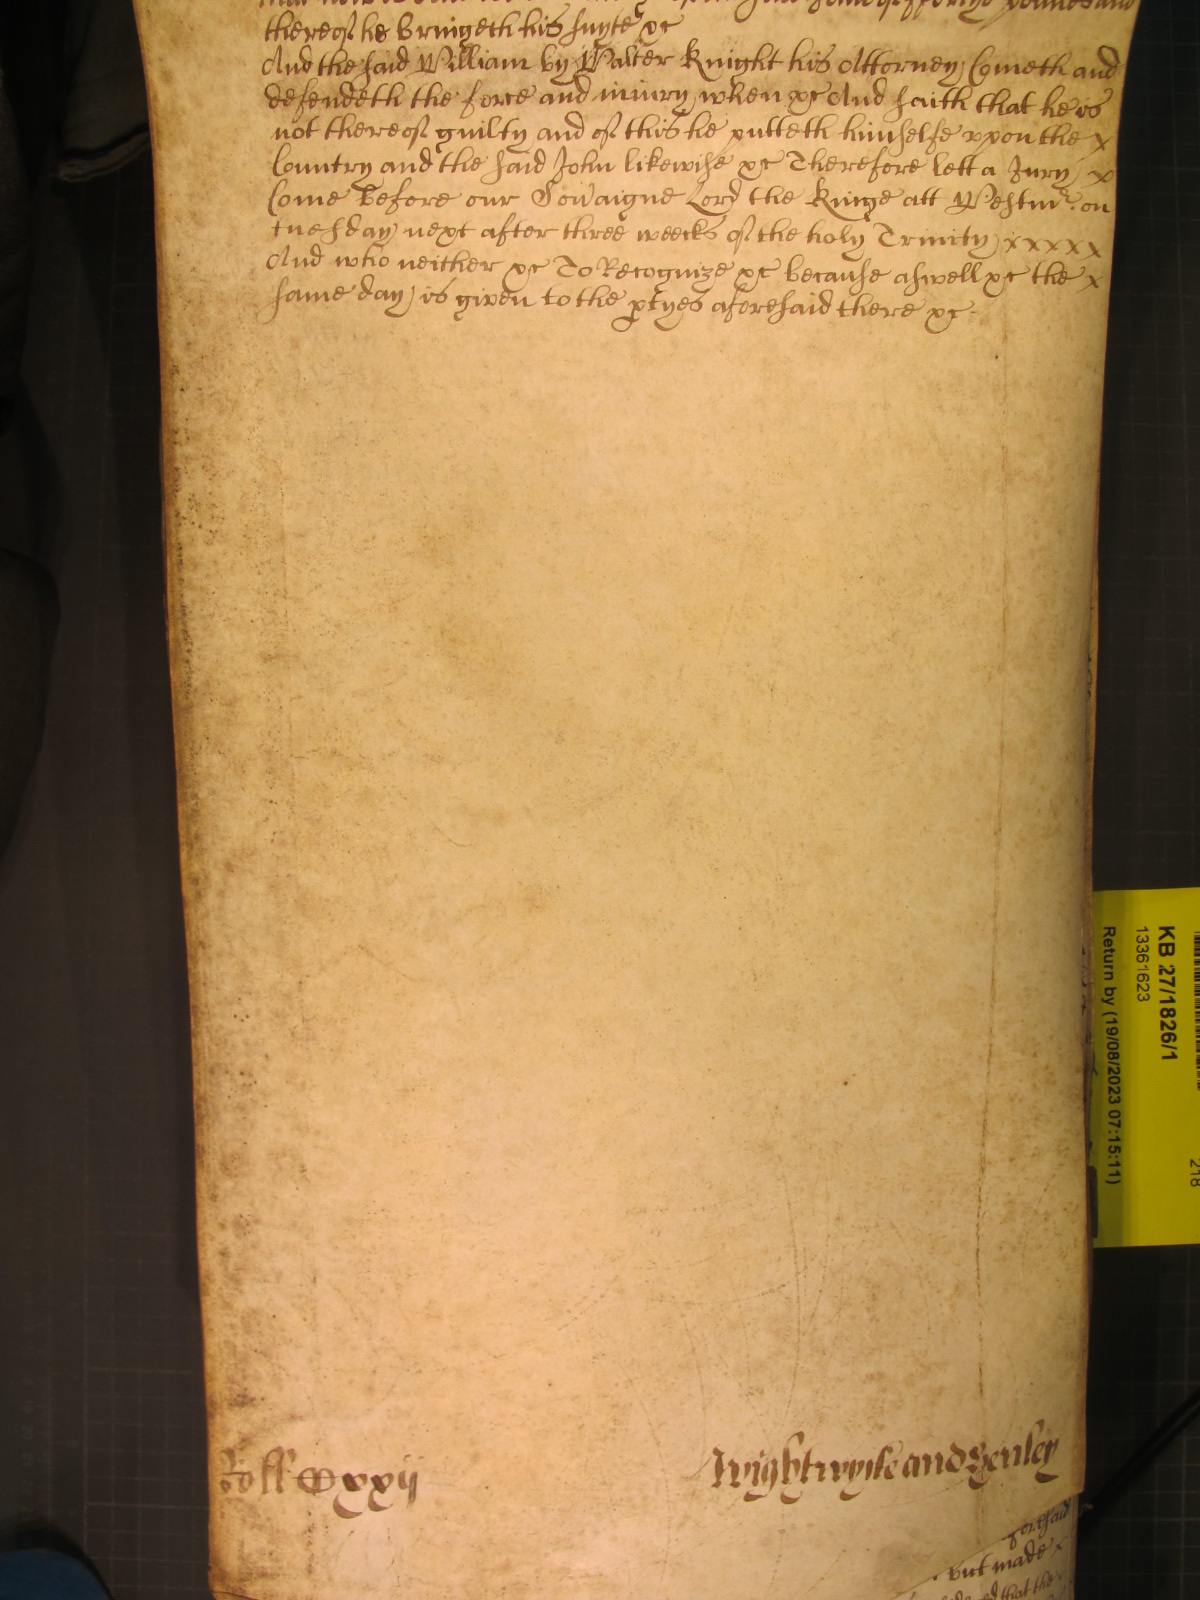 thereof he bringeth his suyte &c
And the said William by Walter Knight his Attorney Cometh and
defendeth the force and iniury when &c And saith that he is
not thereof guilty and of this he putteth himselfe vpon the x
Country and the said John likewise &c Therefore lett a Jury x
Come before our Sovaigne Lord the Kinge att Westmr. on
tuesday next after three weecks of the holy Trinity xxxxx
And who neither &c To Recognize &c because aswell &c the x
same day is given to the ptyes aforesaid there &c
Roll Cxxij
Wightwyke and Henley
aforesaid
but made x
that the
KB 27/1826/1
13361623
Return by (19/08/2023 07:15:11)
218